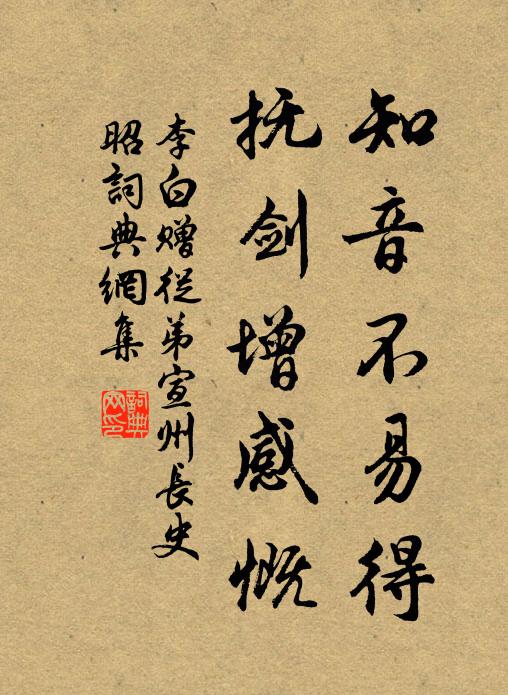 知音不易得
抚剑增感慨
李白赠從弟宣州長史
昭詞典網集
詞典
网印